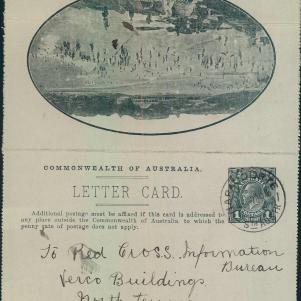 COMMONWEALTH OF AUSTRALIA.
LETTER CARD.
Additional postage must be affixed if this card is addressed to
any place outside the Commonwealth of Australia to which the
penny rate of postage does not apply.
1
To Red Cross Information
Bureau
Verco Buildings
North